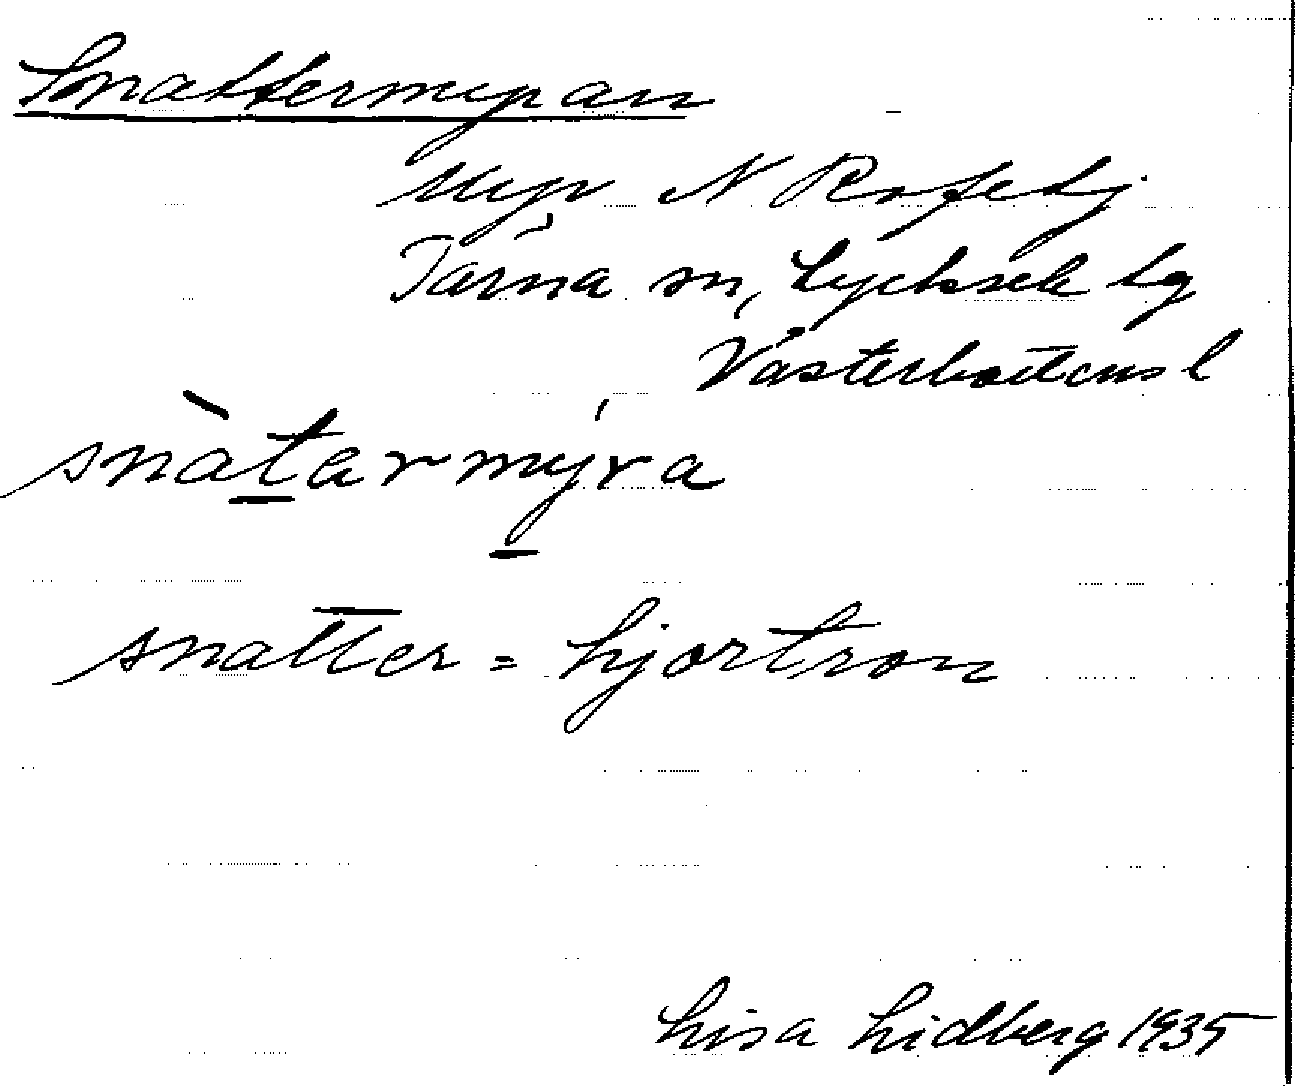 Snattermyran
myr N Rosetj
Tärna sn, Lycksele lg
Västerbottens l
snàtarmýra
snatter = hjortron
Lisa Lidberg 1935